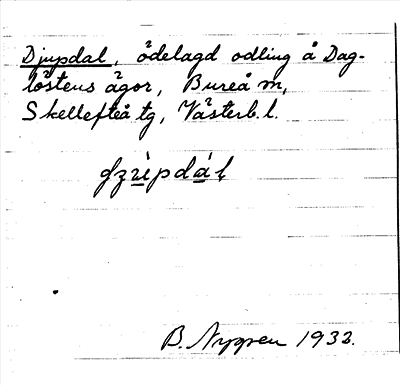 Djupdal, ödelagd odling å Dag-
löstens ägor, Bureå m,
Skellefteå tg, Västerb. l.
B. Nygren 1932.